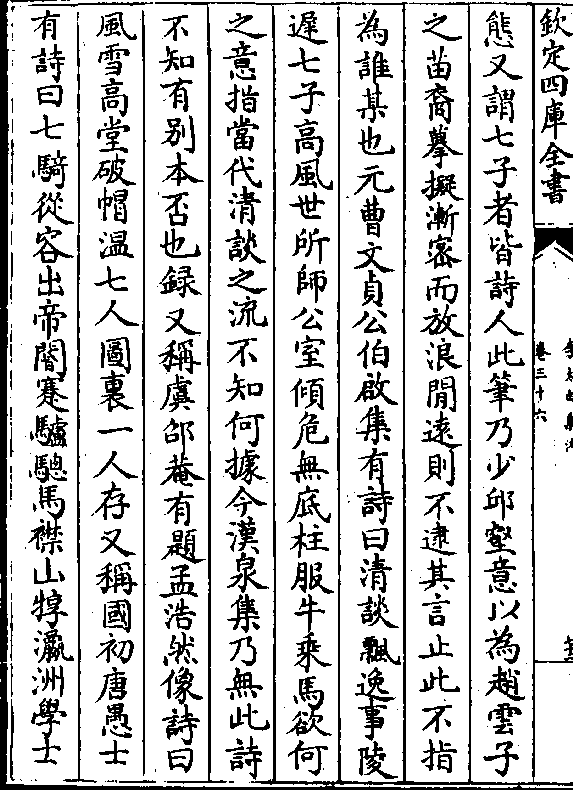 欽定四庫全書
卷三十六
態又謂七子者皆詩人此筆乃少邱壑意以為趙雲子
之苗裔摹擬漸密而放浪閒遠則不逮其言止此不指
為誰某也元曹文貞公伯啟集有詩曰清談飄逸事陵
遲七子高風世所師公室傾危無底柱服牛乗馬欲何
之意指當代清談之流不知何據今漢泉集乃無此詩
不知有别本否也録又稱虞邵菴有題孟浩然像詩曰
風雪高堂破帽温七人圖裏一人存又稱國初唐愚士
有詩曰七騎從容出帝閽蹇驢驄馬襟山犉瀛洲學士